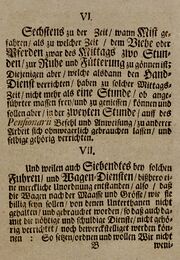 VI.
Sechstens zu der Zeit, wann Mist ge-
fahren, als zu welcher Zeit, dem Viehe oder
Pferden zwar des Mittags zwo Stun-
den, zur Ruhe und Fütterung zu gönnen ist;
Diejenigen aber, welche alsdann den Hand-
Dienst verrichten, haben zu solcher Mittags-
Zeit nicht mehr als eine Stunde, ob ange-
führter massen frey, und zu geniessen, können und
sollen aber, in der zweyten Stunde auf des
Pensionarii Befehl und Anweisung, zu anderer
Arbeit sich ohnweigerlich gebrauchen lassen, und
selbige gehörig verrichten.
VII.
Und weilen auch Siebendtes bey solchen
Fuhren, und Wagen-Diensten, bißhero ei-
ne merckliche Unordnung entstanden, also, daß
die Wagen nach der Maasse und Grösse, wie sie
billig seyn sollen, von denen Unterthanen nicht
gehalten, und gebrauchet worden, so daß auch da-
mit die nöthige und schuldige Dienste, nicht gehö-
rig verrichtet, noch bewerckstelliget werden
können: So setzen, ordnen und wollen Wir nicht
B weni-